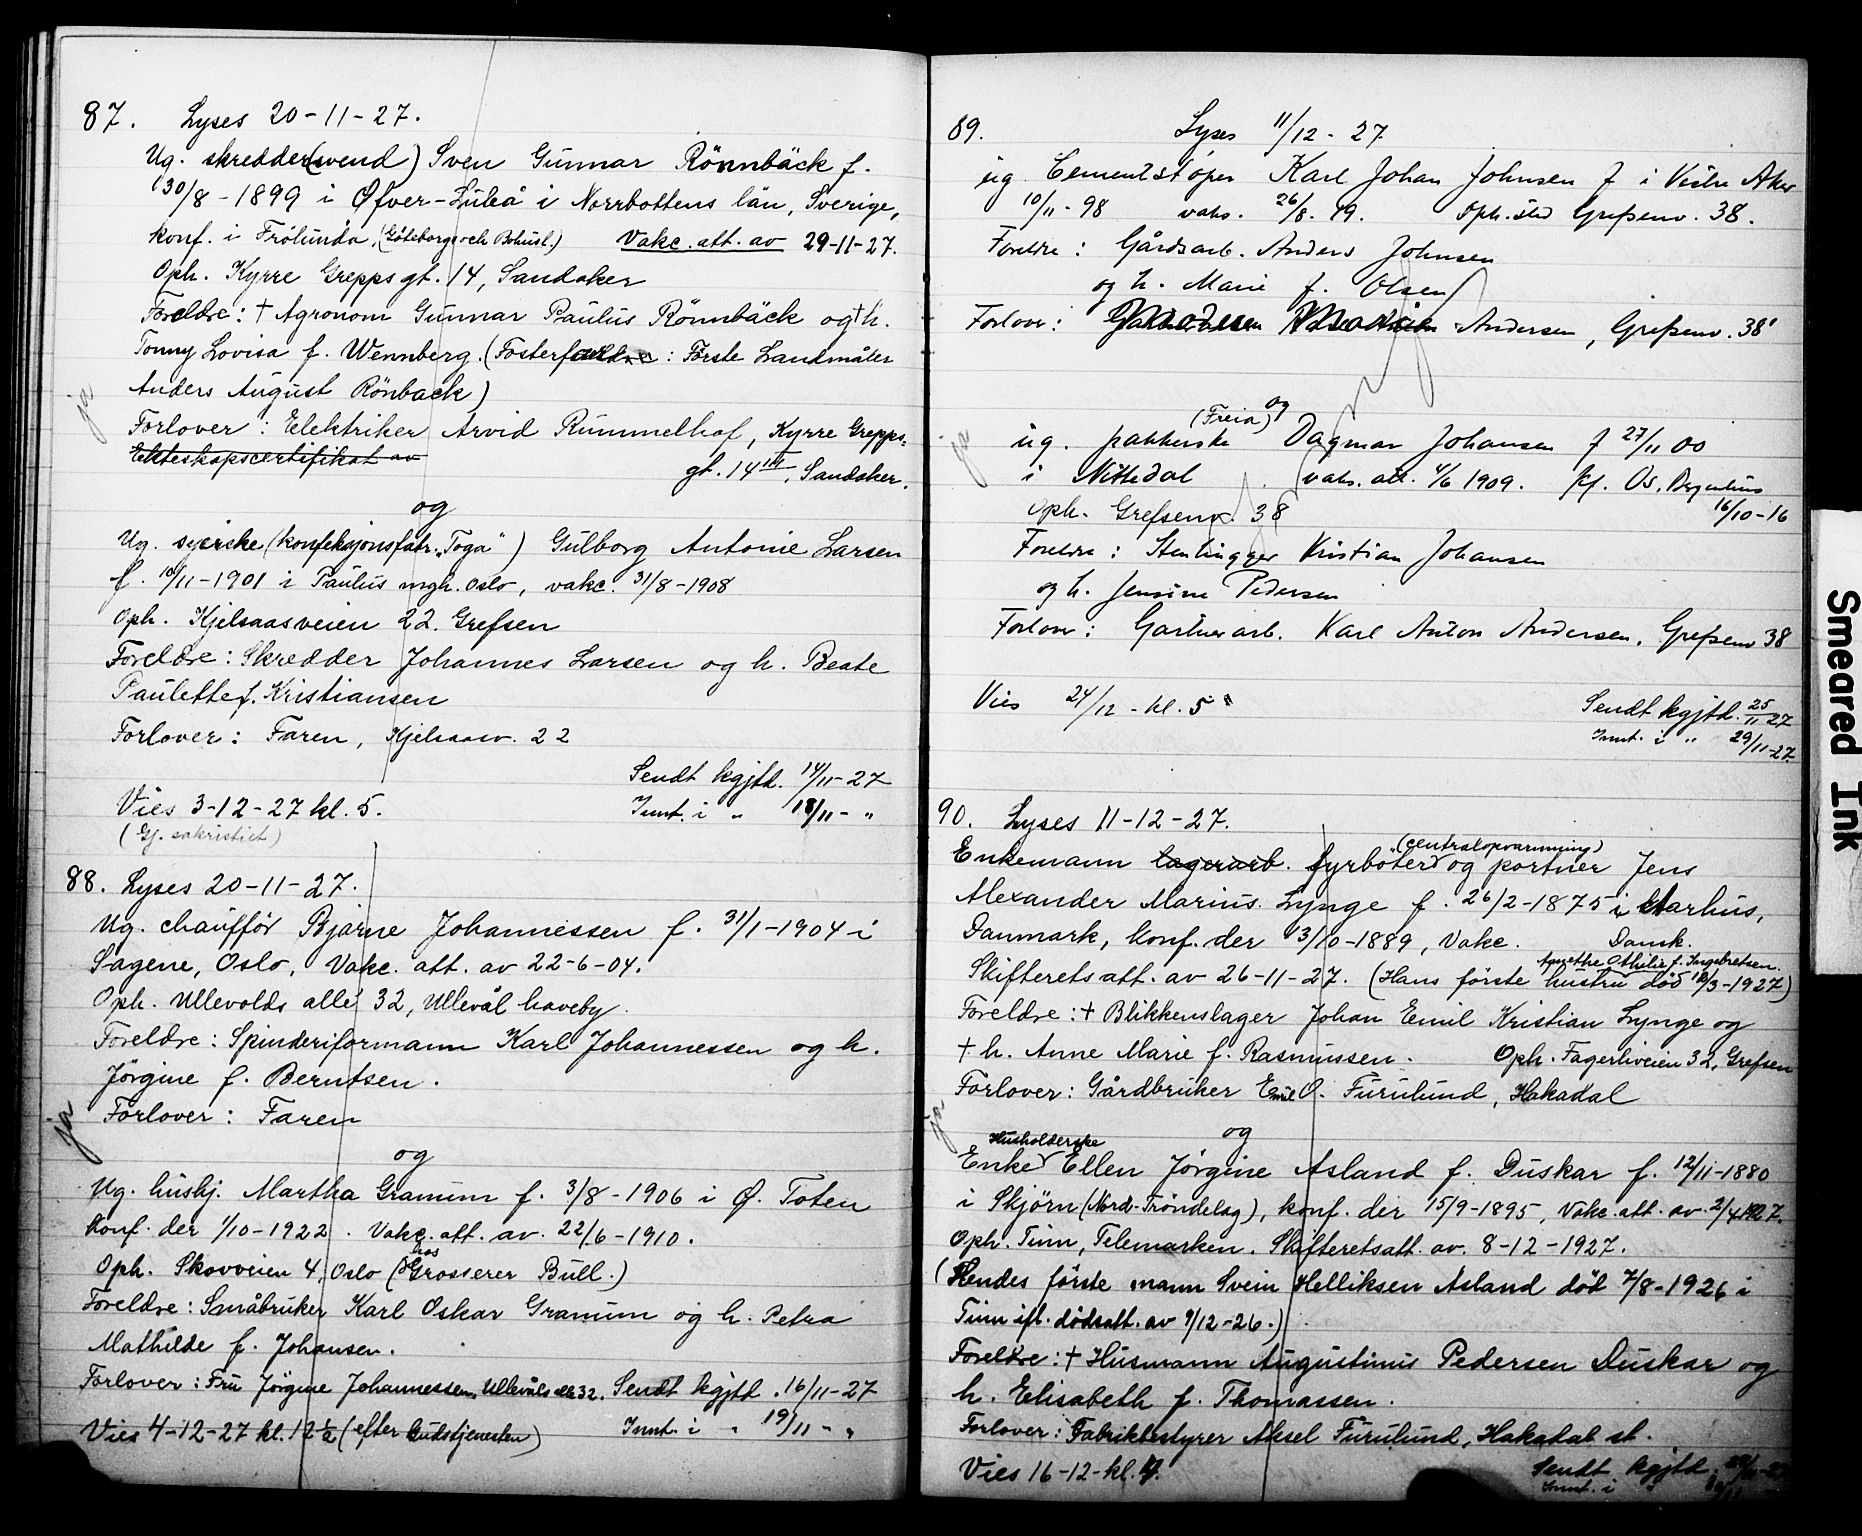 87. Lyses 20-11-27.
Ug. skredder(svend) Sven Gunnar Rönnbäck f.
30/8-1899 i Øfver-Luleå i Norrbottens län, Sverige,
konf. i Frölunda, (Göteborgs och Bohusl.) Vakc. att. av 29-11-27.
Oph. Kyrre Greppsgt. 14, Sandaker
Foreldre: † Agronom Gunnar Paulus Rönnbäck og † h.
Tonny Lovisa f. Wennberg. (Fosterfar: Förste Landmåler
Anders August Rönback)
ja
Forlover: Elektriker Arvid Rummelhof, Kyrre Grepps-
Ekteskapscertifikat av
gt. 14 III, Sandaker.
og
Ug. syerske (konfeksjonsfabr. "Toga") Gulborg Antonie Larsen
f. 10/11-1901 i Paulus mgh. Oslo, vakc. 31/8-1908
Oph. Kjelsaasveien 22. Grefsen
Foreldre: Skredder Johannes Larsen og h. Beate
Paulette f. Kristiansen
Forlover: Faren, Kjelsaasv. 22
Sendt kgjtd. 14/11-27
Vies 3-12-27 kl. 5. Innt. i " 18/11- "
(Gj. sakristiet)
88. Lyses 20-11-27.
Ug. chauffør Bjarne Johannessen f. 31/1-1904 i
Sagene, Oslo, Vakc. att. av 22-6-04.
Oph. Ullevolds allé 32, Ullevål haveby.
Foreldre: Spinderiformann Karl Johannessen og h.
Jörgine f. Berntsen.
ja
Forlover: Faren
og
Ug. hushj. Martha Granum f. 3/8-1906 i Ø. Toten
Konf. der 1/10-1922. Vakc. att. av. 22/6-1910.
Oph. Skovveien 4, Oslo (hos Grosserer Bull.)
Foreldre: Småbruker Karl Oskar Granum og h. Petra
Mathilde f. Johansen.
Forlover: Fru Jörgine Johannessen, Ullevåls alle 32. Sendt kgjtd. 16/11-27
Vies 4-12-27 kl. 12 1/2 (efter Gudstjenesten) Innt. i " 19/11- "
89. Lyses 11/12-27
ug. Cementstøper Karl Johan Johnsen f i Vestre Aker
10/11-98 vaks. 26/8. 19. Oph. sted Grefsenv. 38.
Foreldre: Gårdsarb. Anders Johnsen
og h. Marie f. Olsen
Forlover: Andersen, Grefsenv. 38
og
(Freia)
ja
ug. pakkerske Dagmar Johansen f 27/11 00
i Nittedal vaks. att. 4/6 1909. kf. Os.
16/10-16
Oph. Grefsenv. 38
Foreldre: Stenhugger Kristian Johansen
og h. Jensine Pedersen
Forlover: Gartnerarb. Karl Anton Andersen, Grefsenv 38
Vies 24/12-kl. 5 Sendt kgjtd. 25/11 27
Innt. i " 29/11-27.
90. Lyses 11-12-27.
(centralopvarmning)
Enkemann lagerarb. fyrböter og portner Jens
Alexander Marius Lynge f. 26/2-1875 i Aarhus,
Danmark, konf. der 13/10-1889, Vakc. Dansk.
Agnethe Othilie f. Ingebretsen
Skifteretsatt. av 26-11-27. (Hans förste hustru död 18/3-1927)
Foreldre: † Blikkenslager Johan Emil Kristian Lynge og
† h. Anne Marie f. Rasmussen. Oph. Fagerliveien 32, Grefsen
Forlover: Gårdbruker Emil O. Furulund, Hakadal
ja
og
Husholderske
Enke Ellen Jörgine Asland f. Duskar f. 12/11-1880
i Skjörn (Nord-Tröndelag), konf. der 15/9-1895, Vakc. att. av. 2/4 1927.
Oph. Tinn, Telemarken. Skifteretsatt. av. 8-12-1927.
(Hendes förste mann Svein Helliksen Asland död 7/8-1926 i
Tinn ifl. dödsatt. av 9/12-26.)
Foreldre: † Husmann Augustinus Pedersen Duskar og
h. Elisabeth f. Thomassen.
Forlover: Fabrikbestyrer Aksel Furulund, Hakadal st.
Vies 16-12-kl. 4. Sendt kgjtd.
Innt. i
Smeared Ink